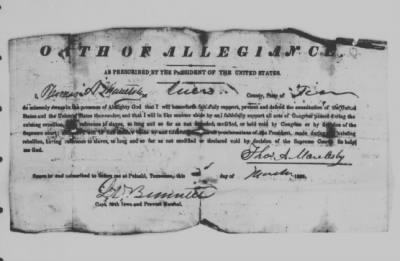 OATH OF ALLEGIANCE,
AS PRESCRIBED BY THE PRESIDENT OF THE UNITED STATES.
I, County, State of Tenn
do solemnly swear in the presence of Almighty God that I will henceforth faithfully support, protect and defend the constitution of the United
States and the Union of States thereunder, and that I will in like manner abide by and faithfully support all acts of Congress passed during the
existing rebellion, with reference to slaves, so long and so far as not repealed, modified, or held void by Congress or by decision of the
Supreme court; and that I will in like manner abide by and faithfully support all proclamations of the President, made during the existing
rebellion, having reference to slaves, so long and so far as not modified or declared void by decision of the Supreme Court. So help
me God.
Thos. A.
Sworn and subscribed to before me at Pulaski, Tennessee, this day of
Capt. Iowa and Provost Marshal.